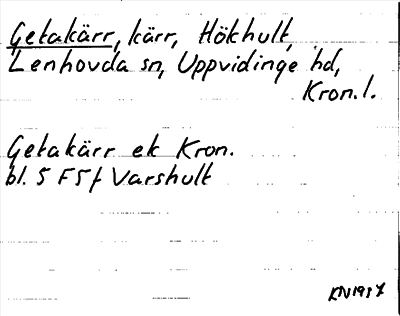 Getakärr, kärr, Hökhult,
Lenhovda sn, Uppvidinge hd,
Kron. l.
Getakärr ek Kron.
bl. 5 F5f Varshult